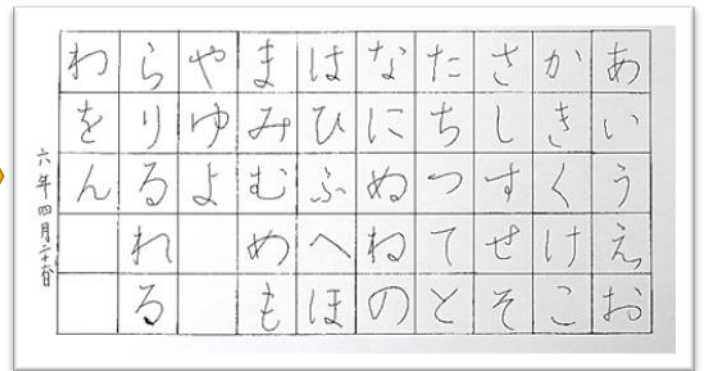 あいうえお
かきくけこ
さしすせそ
たちつてと
なにぬねの
はひふへほ
まみむめも
やゆよ
らりるれる
わをん
六年四月二十